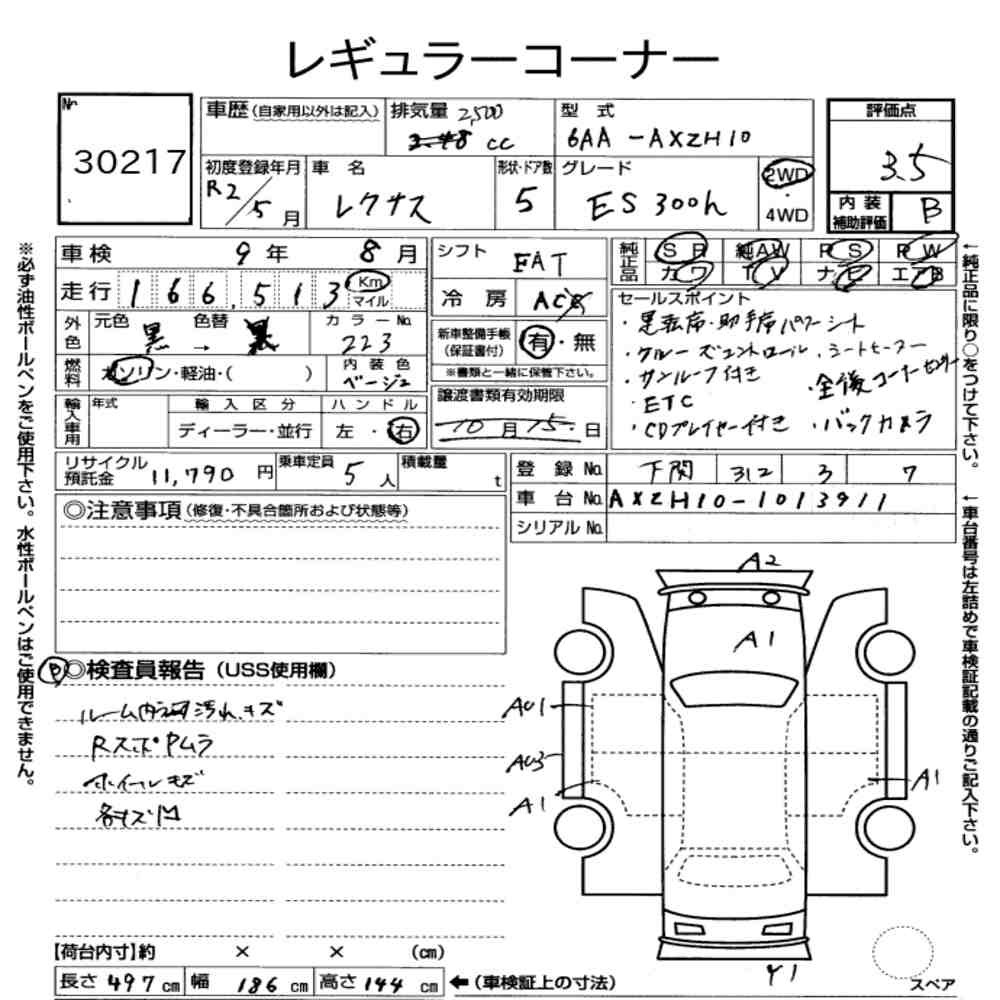 レギュラーコーナー
No 30217
車歴(自家用以外は記入)
排気量 2,500 cc
型式 6AA-AXZH10
評価点 3.5
初度登録年月 R2/5月
車名 レクサス
形状・ドア数 5
グレード ES300h
2WD・4WD
内装補助評価 B
車検 9年8月
シフト FAT
純正品 SR 純AW PS PW
カワ TV ナビ エアB
走行 166,513 Km マイル
冷房 AC
セールスポイント
・運転席・助手席パワーシート
・クルーズコントロール ・シートヒーター
・サンルーフ付き ・全後コーナーセンサー
・ETC
・CDプレイヤー付き ・バックカメラ
外色 元色 黒 → 色替 黒
カラーNo. 223
新車整備手帳(保証書付) 有・無
※書類と一緒に保管下さい。
燃料 ガソリン・軽油・( )
内装色 ベージュ
譲渡書類有効期限 10月15日
輸入車用 年式
輸入区分 ディーラー・並行
ハンドル 左・右
リサイクル預託金 11,790円
乗車定員 5人
積載量 t
登録No. 下関 312 3 7
車台No. AXZH10-1013911
シリアルNo.
◎注意事項(修復・不具合箇所および状態等)
P◎検査員報告(USS使用欄)
ルーム内 汚れ、キズ
Rスポ Pムラ
ホイールキズ
各キズ凹
A2
A1
AU1
AU3
A1
A1
Y1
スペア
【荷台内寸】約 × × (cm)
長さ 497cm 幅 186cm 高さ 144cm ←(車検証上の寸法)
※必ず油性ボールペンをご使用下さい。水性ボールペンはご使用できません。
←純正品に限り○をつけて下さい。
←車台番号は左詰めで車検証記載の通りご記入下さい。